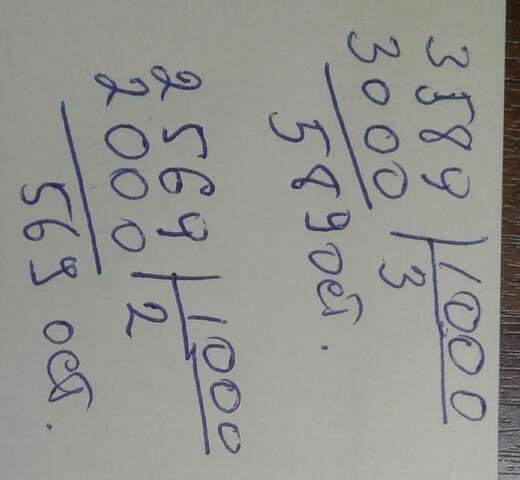 3589 | 1000
3000 3
589 ост.
2569 | 1000
2000 2
569 ост.